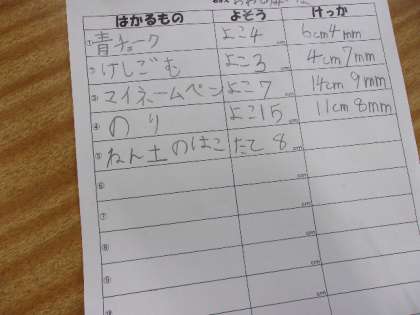 はかるもの よそう けっか
① 青チョーク よこ4cm 6cm4mm
② けしごむ よこ3cm 4cm7mm
③ マイネームペン よこ7cm 14cm9mm
④ のり よこ15cm 11cm8mm
⑤ ねん土のはこ たて8cm
⑥ cm
⑦ cm
⑧ cm
⑨ cm
cm